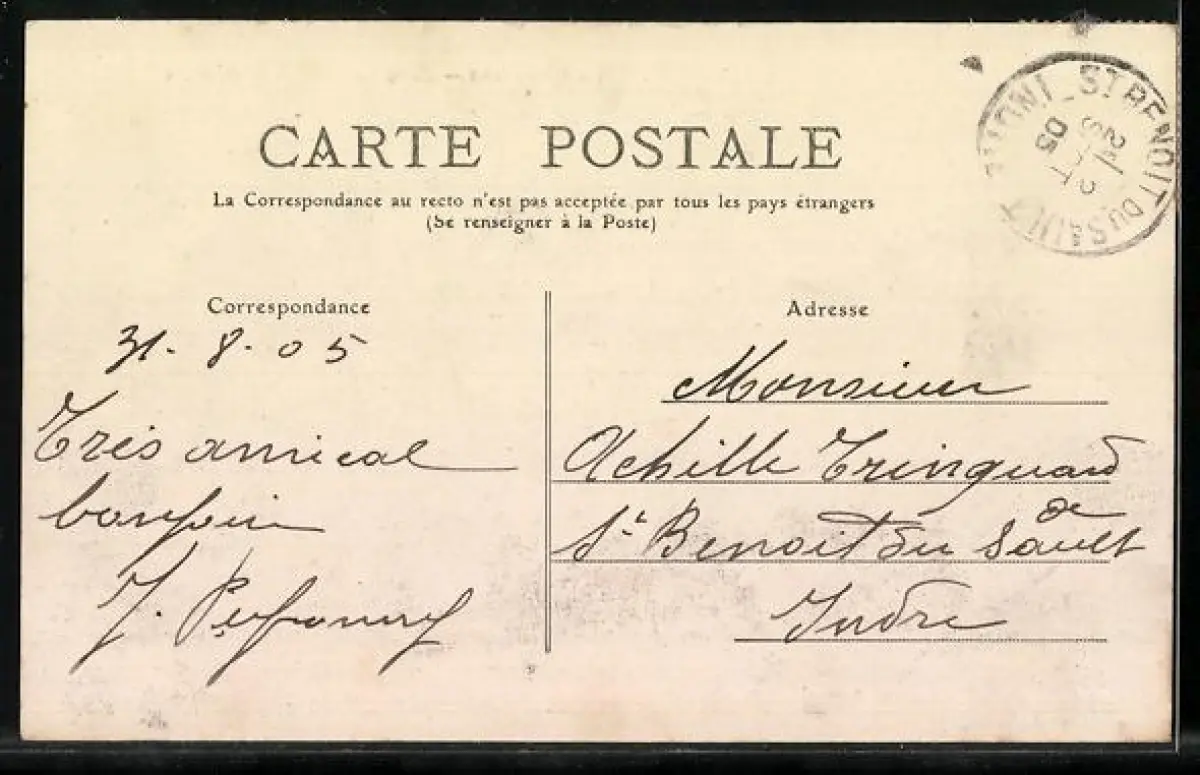 CARTE POSTALE
La Correspondance au recto n'est pas acceptée par tous les pays étrangers
(Se renseigner à la Poste)
Correspondance
31-8-05
Très amical
bonjour
J.
Adresse
Monsieur
Achille Tringuard
St Benoit du Sault
Indre
ST BENOIT DU SAULT
SEPT
05